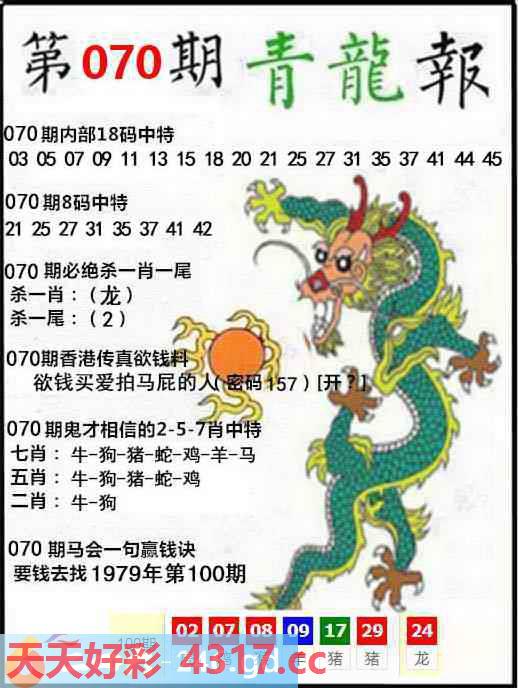 第070期青龍報
070期内部18码中特
03 05 07 09 11 13 15 18 20 21 25 27 31 35 37 41 44 45
070期8码中特
21 25 27 31 35 37 41 42
070期必绝杀一肖一尾
杀一肖：（龙）
杀一尾：（2）
070期香港传真欲钱料
欲钱买爱拍马屁的人(密码157）[开？]
070期鬼才相信的2-5-7肖中特
七肖：牛-狗-猪-蛇-鸡-羊-马
五肖：牛-狗-猪-蛇-鸡
二肖：牛-狗
070期马会一句赢钱诀
要钱去找1979年第100期
100期 02 07 08 09 17 29 24
猪 猪 龙
天天好彩 4317.cc